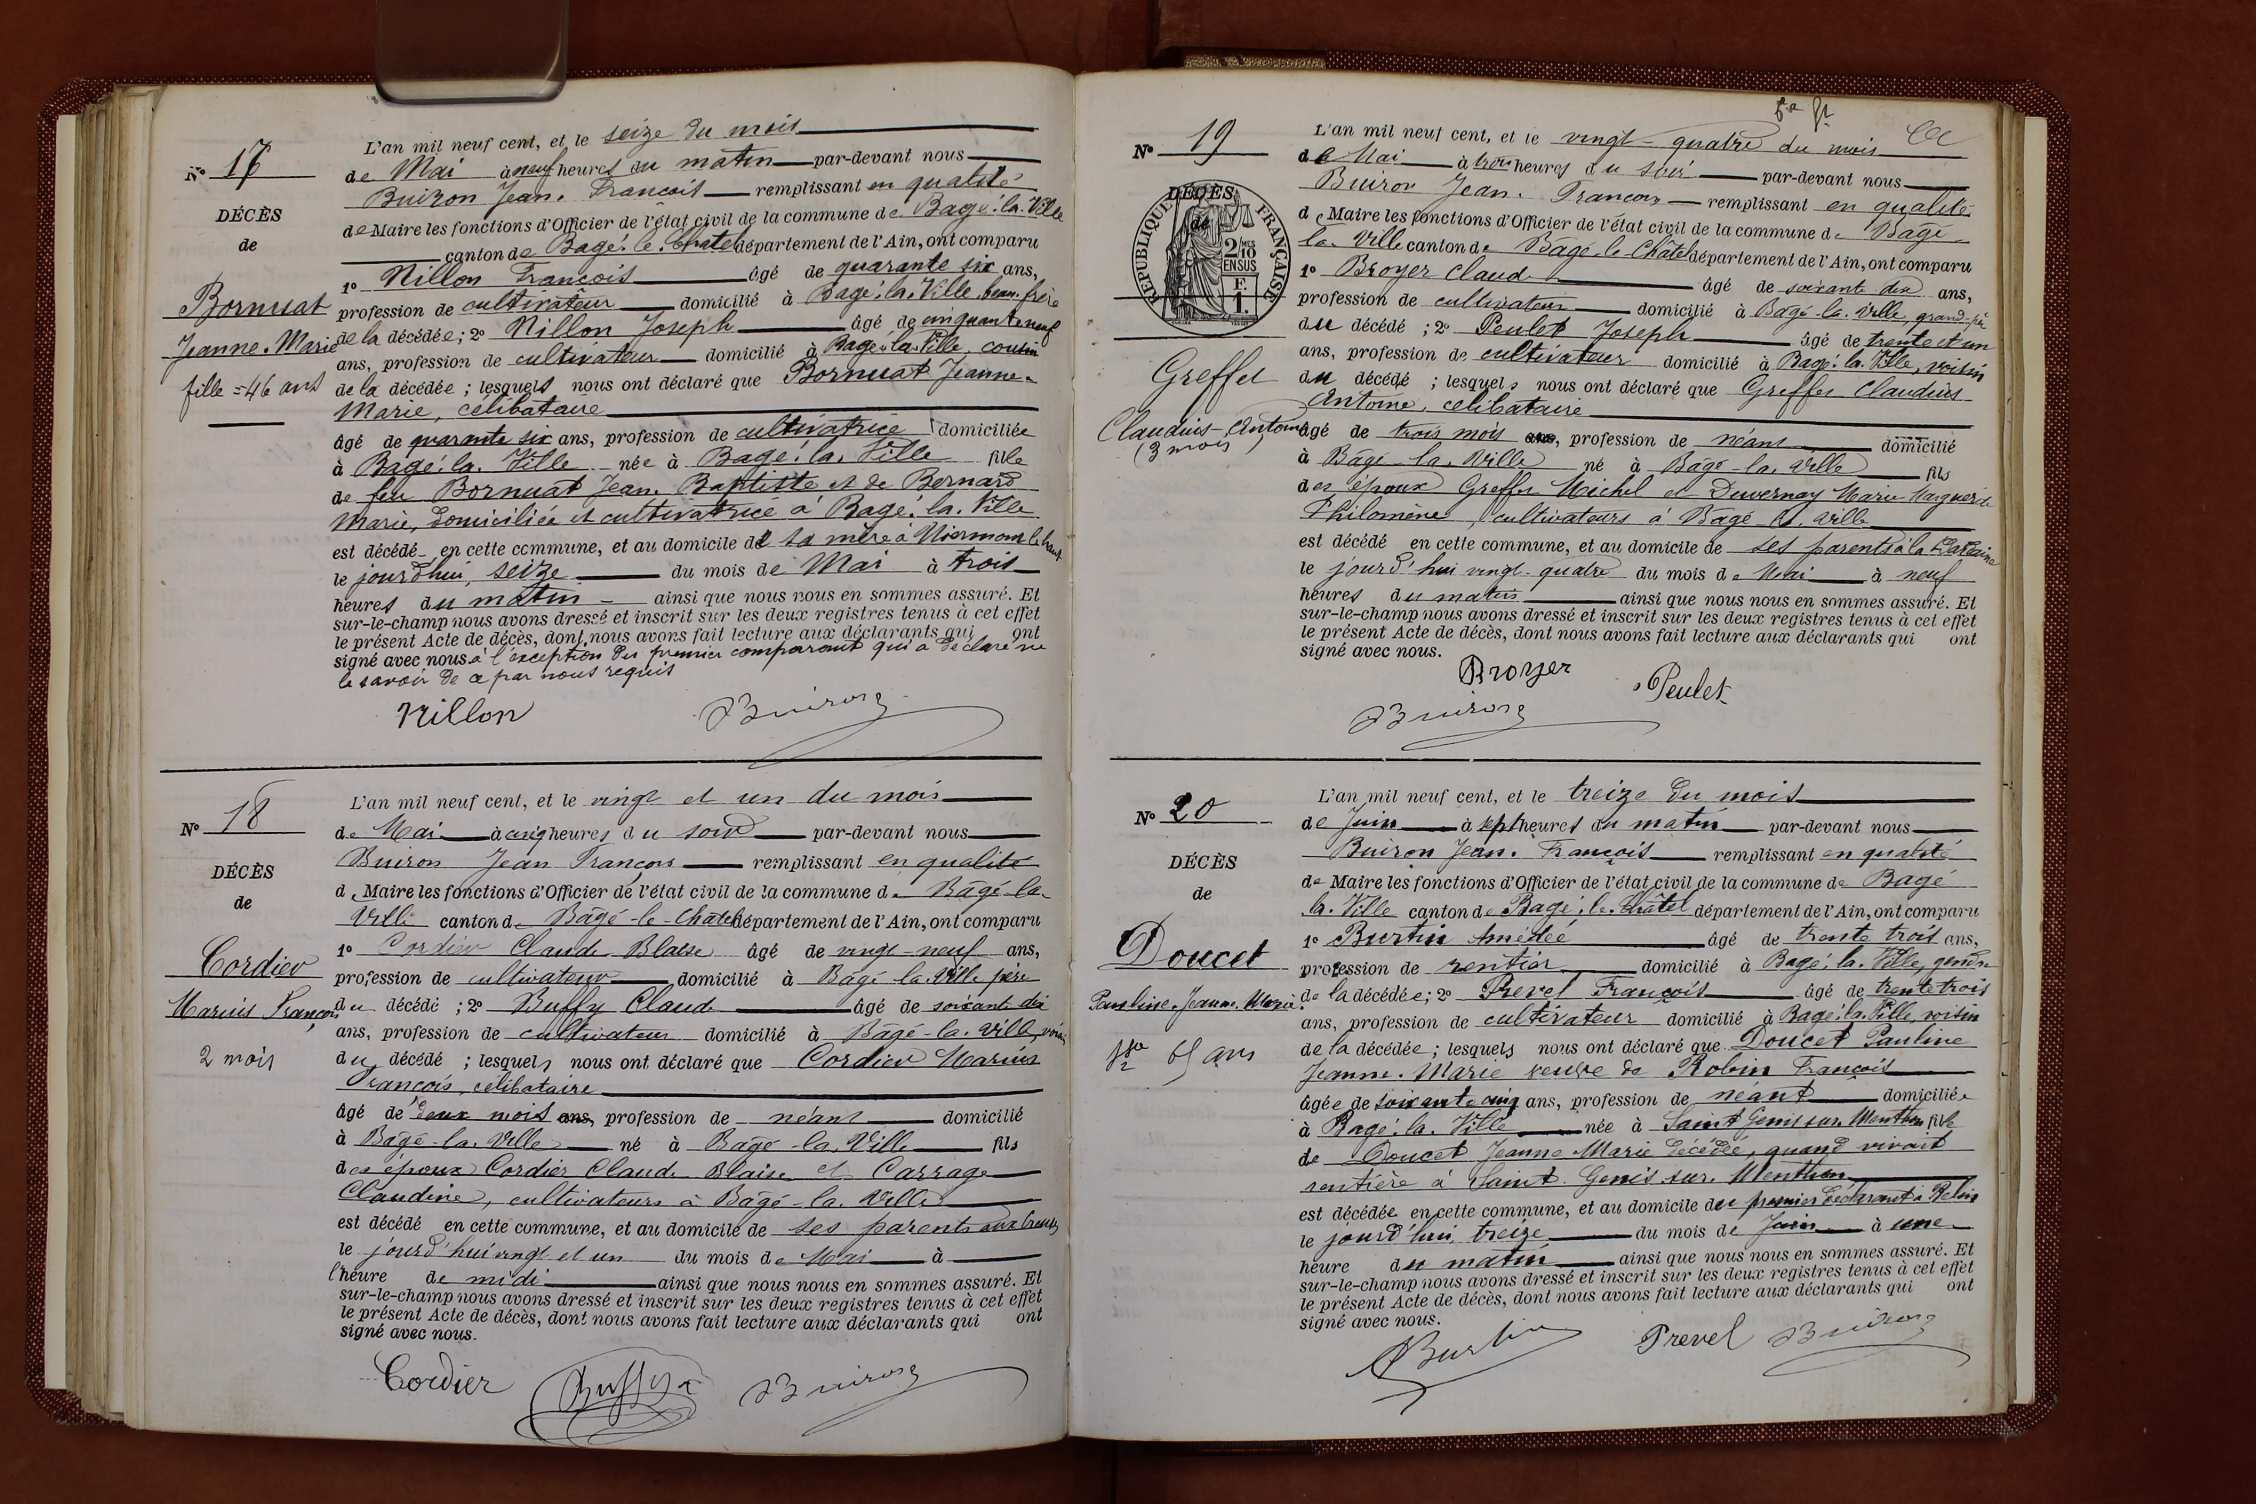 N° 17
DÉCÈS
de
Bornuat
Jeanne-Marie
fille = 46 ans
L'an mil neuf cent, et le seize du mois
de Mai à neuf heures du matin par-devant nous
Buiron Jean-François remplissant en qualité
de Maire les fonctions d'Officier de l'état civil de la commune de Bagé-la-Ville
canton de Bagé-le-Châtel département de l'Ain, ont comparu
1° Nillon François âgé de quarante six ans,
profession de cultivateur domicilié à Bagé-la-Ville, beau-frère
de la décédée ; 2° Nillon Joseph âgé de cinquante neuf
ans, profession de cultivateur domicilié à Bagé-la-Ville, cousin
de la décédée ; lesquels nous ont déclaré que Bornuat Jeanne-
Marie, célibataire
âgé de quarante six ans, profession de cultivatrice domiciliée
à Bagé-la-Ville née à Bagé-la-Ville fille
de feu Bornuat Jean-Baptiste et de Bernard
Marie, domiciliée et cultivatrice à Bagé-la-Ville
est décédé en cette commune, et au domicile de sa mère à
le jourd'hui, seize du mois de Mai à trois
heures du matin ainsi que nous nous en sommes assuré. Et
sur-le-champ nous avons dressé et inscrit sur les deux registres tenus à cet effet
le présent Acte de décès, dont nous avons fait lecture aux déclarants qui ont
signé avec nous à l'exception du premier comparant qui a déclaré ne
le savoir de ce par nous requis
Nillon Buiron
N° 18
DÉCÈS
de
Cordier
Marius François
2 mois
L'an mil neuf cent, et le vingt et un du mois
de Mai à cinq heures du soir par-devant nous
Buiron Jean François remplissant en qualité
de Maire les fonctions d'Officier de l'état civil de la commune de Bâgé-la-
Ville canton de Bâgé-le-Châtel département de l'Ain, ont comparu
1° Cordier Claude Blaise âgé de vingt-neuf ans,
profession de cultivateur domicilié à Bâgé-la-Ville père
du décédé ; 2° Buffy Claude âgé de soixante dix
ans, profession de cultivateur domicilié à Bâgé-la-Ville, voisin
du décédé ; lesquels nous ont déclaré que Cordier Marius
François, célibataire
âgé de deux mois ans, profession de néant domicilié
à Bâgé-la-Ville né à Bâgé-la-Ville fils
des époux Cordier Claude Blaise et Carrage
Claudine, cultivateurs à Bâgé-la-Ville
est décédé en cette commune, et au domicile de ses parents
le jourd'hui vingt et un du mois de Mai à
l'heure de midi ainsi que nous nous en sommes assuré. Et
sur-le-champ nous avons dressé et inscrit sur les deux registres tenus à cet effet
le présent Acte de décès, dont nous avons fait lecture aux déclarants qui ont
signé avec nous.
Cordier Buffy Buiron
N° 19
DÉCÈS
de
RÉPUBLIQUE FRANÇAISE
2/10
EN SUS
F.
1.
Greffet
Claudius-Antoine
(3 mois)
L'an mil neuf cent, et le vingt-quatre du mois
de Mai à trois heures du soir par-devant nous
Buiron Jean-François remplissant en qualité
de Maire les fonctions d'Officier de l'état civil de la commune de Bâgé-
la-Ville canton de Bâgé-le-Châtel département de l'Ain, ont comparu
1° Broyer Claude âgé de soixante dix ans,
profession de cultivateur domicilié à Bâgé-la-Ville, grand-père
du décédé ; 2° Peulet Joseph âgé de trente et un
ans, profession de cultivateur domicilié à Bagé-la-Ville, voisin
du décédé ; lesquels nous ont déclaré que Greffet Claudius
Antoine, célibataire
âgé de trois mois ans, profession de néant domicilié
à Bâgé-la-Ville né à Bâgé-la-Ville fils
des époux Greffet Michel et Duvernay Marie Marguerite
Philomène, cultivateurs à Bâgé-la-Ville
est décédé en cette commune, et au domicile de ses parents à la
le jourd'hui vingt-quatre du mois de Mai à neuf
heures du matin ainsi que nous nous en sommes assuré. Et
sur-le-champ nous avons dressé et inscrit sur les deux registres tenus à cet effet
le présent Acte de décès, dont nous avons fait lecture aux déclarants qui ont
signé avec nous.
Broyer Peulet
Buiron
N° 20
DÉCÈS
de
Doucet
Pauline-Jeanne-Marie
65 ans
L'an mil neuf cent, et le treize du mois
de Juin à sept heures du matin par-devant nous
Buiron Jean-François remplissant en qualité
de Maire les fonctions d'Officier de l'état civil de la commune de Bagé
la-Ville canton de Bagé-le-Châtel département de l'Ain, ont comparu
1° Burtin Amédée âgé de trente trois ans,
profession de rentier domicilié à Bagé-la-Ville, gendre
de la décédée ; 2° Prevel François âgé de trente trois
ans, profession de cultivateur domicilié à Bagé-la-Ville, voisin
de la décédée ; lesquels nous ont déclaré que Doucet Pauline
Jeanne-Marie veuve de Robin François
âgée de soixante cinq ans, profession de néant domiciliée
à Bagé-la-Ville née à Saint Genis sur Menthon fille
de Doucet Jeanne-Marie décédée, quand vivait
rentière à Saint-Genis-sur-Menthon
est décédée en cette commune, et au domicile du premier déclarant à
le jourd'hui, treize du mois de Juin à une
heure du matin ainsi que nous nous en sommes assuré. Et
sur-le-champ nous avons dressé et inscrit sur les deux registres tenus à cet effet
le présent Acte de décès, dont nous avons fait lecture aux déclarants qui ont
signé avec nous.
Burtin Prevel Buiron